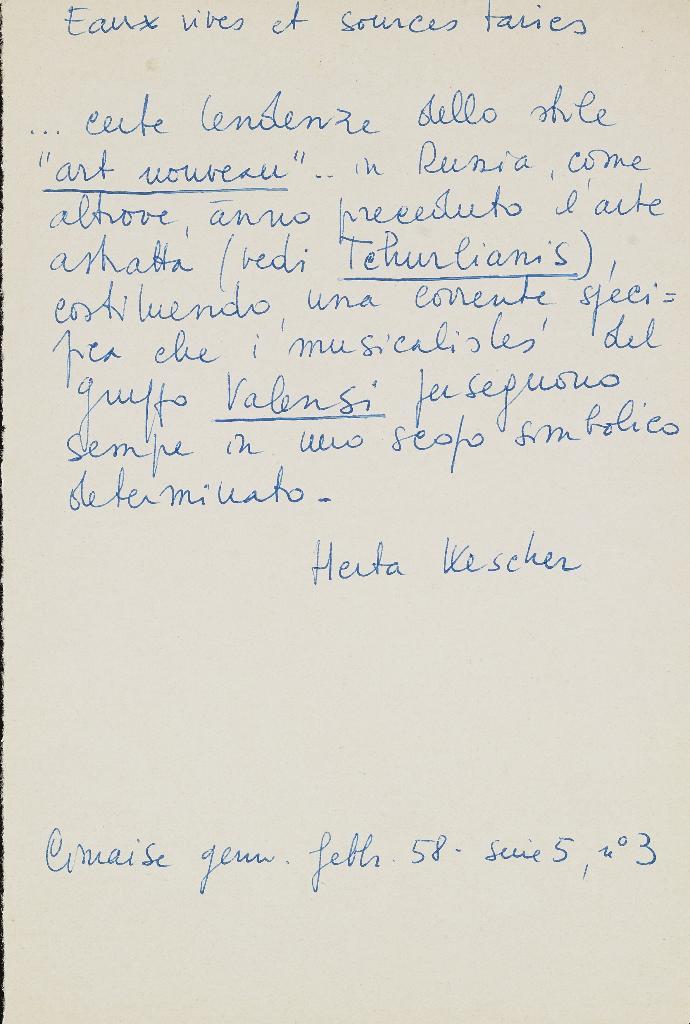 Eaux vives et sources taries
... certe tendenze dello stile
"art nouveau".. in Russia, come
altrove, ànno preceduto l'arte
astratta (vedi Tchurlianis),
costituendo una corrente speci=
fica che i 'musicalistes' del
gruppo Valensi perseguono
sempre in uno scopo simbolico
determinato -
Herta Wescher
Cimaise genn. febbr. 58 - serie 5, n° 3